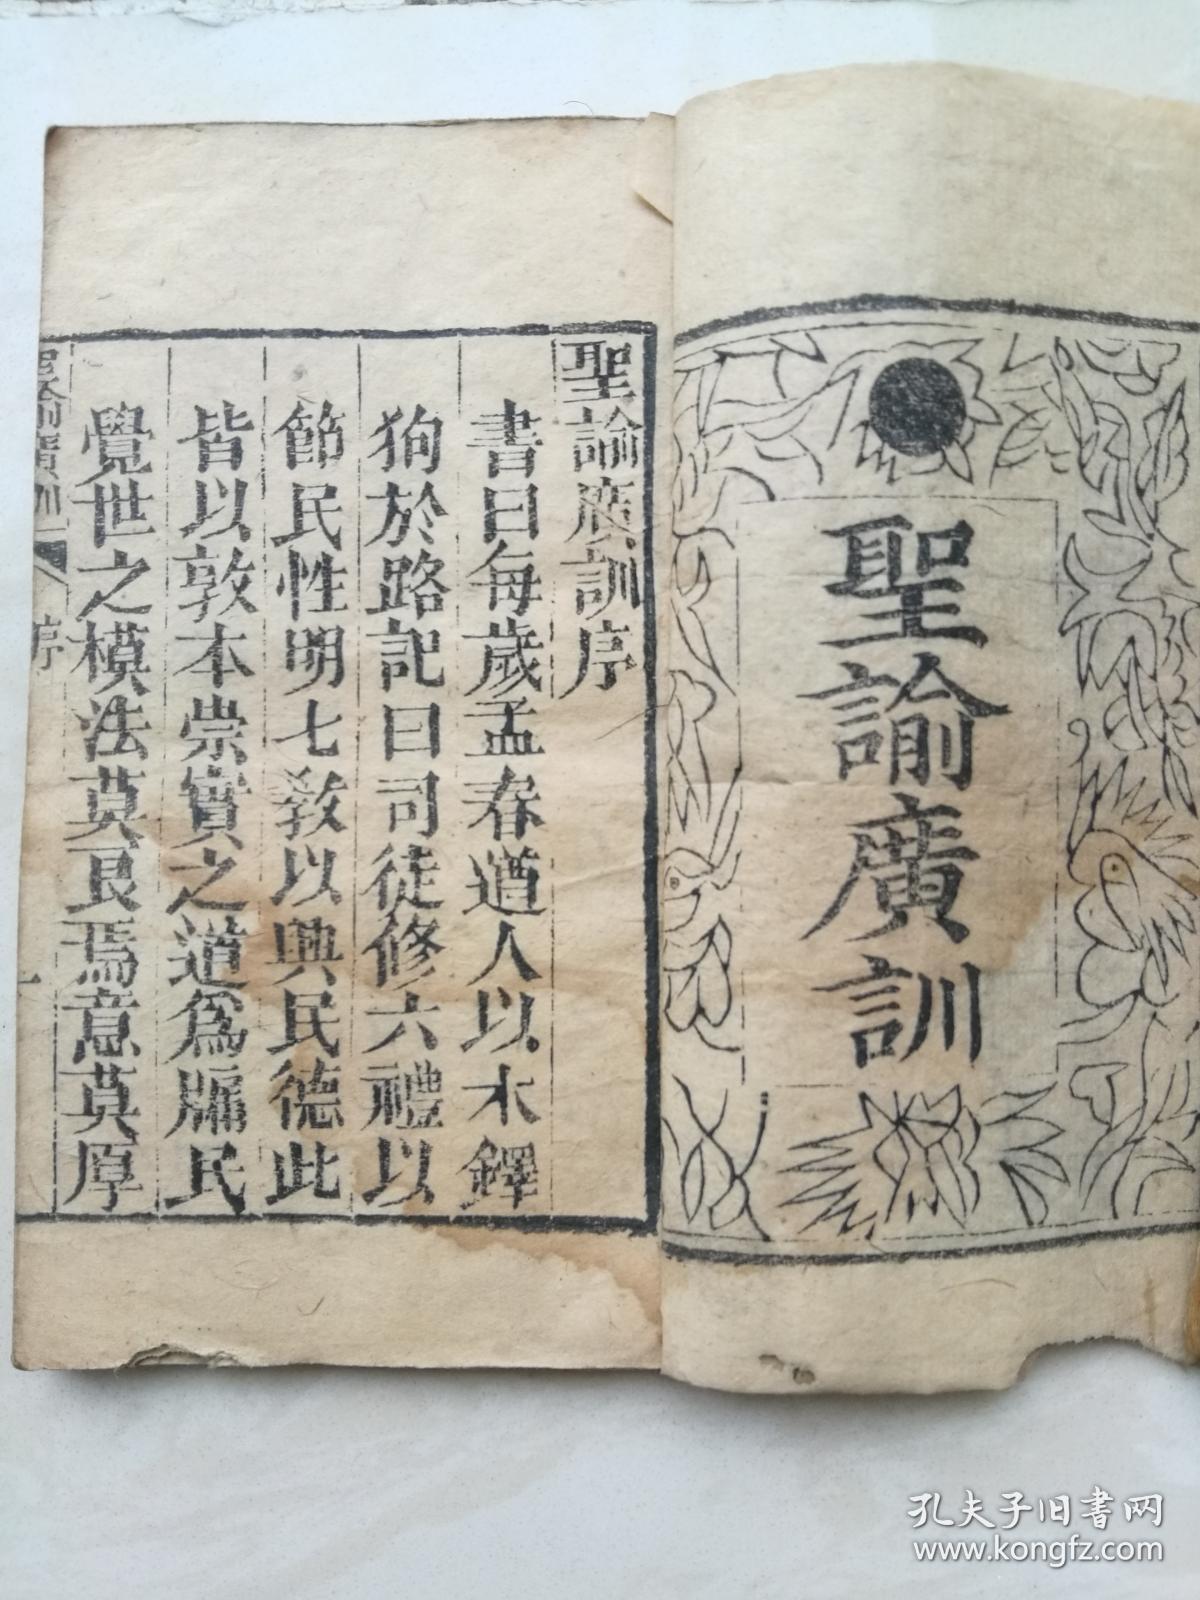 聖諭廣訓
聖諭廣訓序
書曰每歲孟春遒人以木鐸
狥於路記曰司徒修六禮以
節民性明七敎以興民德此
皆以敦本崇實之道爲牖民
覺世之模法莫良焉意莫厚
聖諭廣訓 序 一
孔夫子旧书网
www.kongfz.com